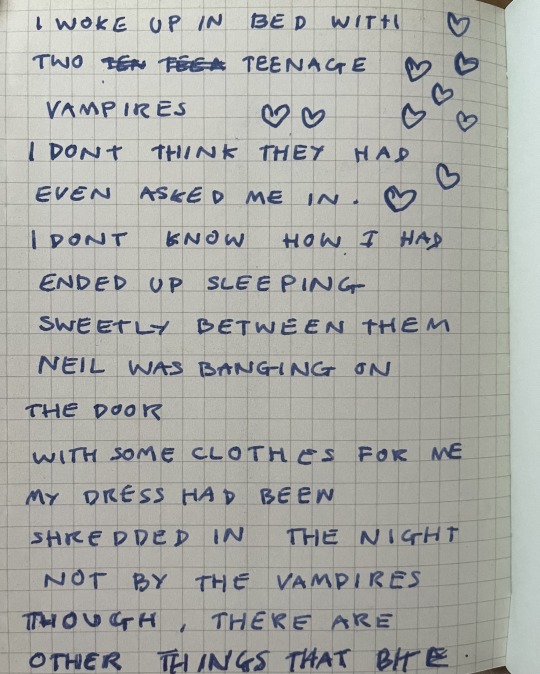 I WOKE UP IN BED WITH
TWO TEN TEEA TEENAGE
VAMPIRES
I DONT THINK THEY HAD
EVEN ASKED ME IN.
I DONT KNOW HOW I HAD
ENDED UP SLEEPING
SWEETLY BETWEEN THEM
NEIL WAS BANGING ON
THE DOOR
WITH SOME CLOTHES FOR ME
MY DRESS HAD BEEN
SHREDDED IN THE NIGHT
NOT BY THE VAMPIRES
THOUGH, THERE ARE
OTHER THINGS THAT BITE.